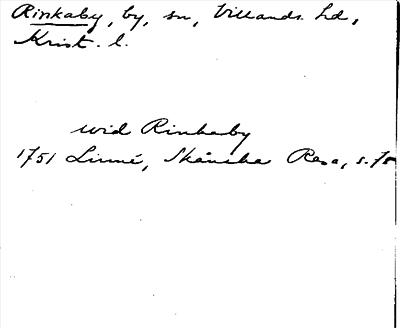 Rinkaby, by, sn, Villands hd,
Krist. l.
wid Rinkaby
1751 Linné, Skånska Resa, s. 75